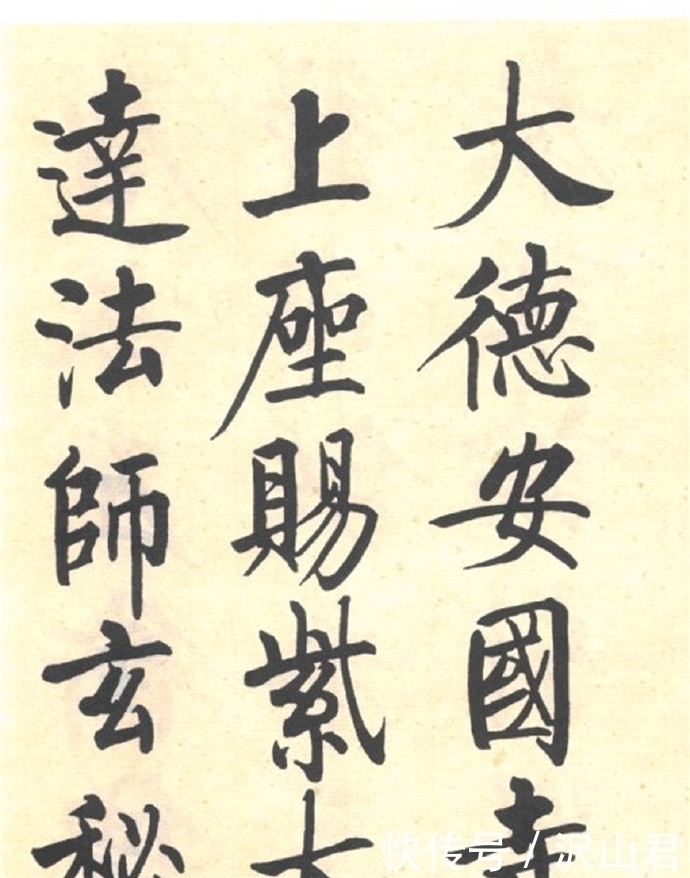 大德安國寺
上座賜紫大
達法師玄秘
快传号/沢山君